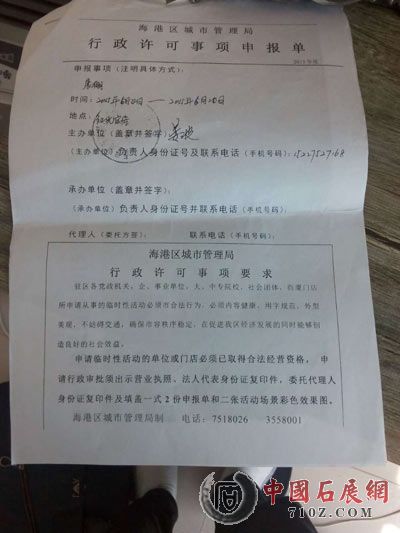 海港区城市管理局
行政许可事项申报单
2015年度
申报事项（注明具体方式）：
时间：2015年6月2日——2015年6月10日
地点：
主办单位（盖章并签字）
（主办单位）负责人身份证号及联系电话（手机号码）：15227527168
承办单位（盖章并签字）：
（承办单位）负责人身份证号并联系电话（手机号码）：
代理人（委托方签）： 联系电话（手机号码）：
海港区城市管理局
行政许可事项要求
驻区各党政机关、企、事业单位、大、中专院校、社会团体、街厦门店
所申请从事的临时性活动必须市合法行为，必须内容健康、用字规范、外型
美观，不妨碍交通，确保市容秩序稳定，在促进我区经济发展的同时能够创
造良好的社会效益。
申请临时性活动的单位或门店必须已取得合法经营资格，申
请行政审批须出示营业执照、法人代表身份证复印件，委托代理人
身份证复印件及填盖一式2份申报单和二张活动场景彩色效果图。
海港区城市管理局制 电话：7518026 3558001
中國石展網
710Z.COM